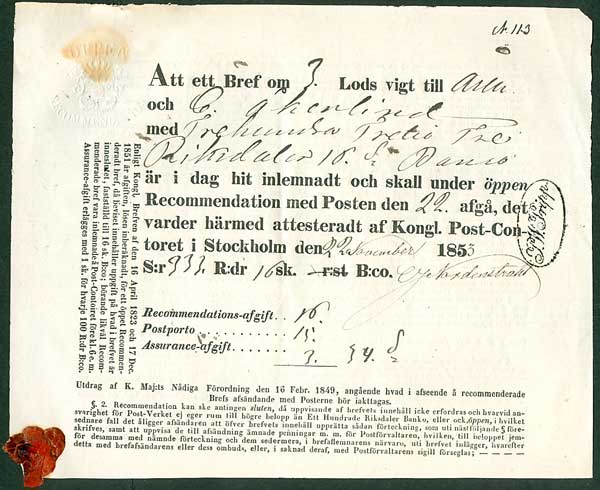 N. 113
Att ett Bref om 3. Lods vigt till
och C. Åkerlind
med Trehundra Tretio Tre
Riksdaler 16 s Banco
är i dag hit inlemnadt och skall under öppen
Recommendation med Posten den 22. afgå, det
varder härmed attesteradt af Kongl. Post-Con-
toret i Stockholm den 22 November 1853
S:r 333. R:dr 16 sk. r:st B:co.
Recommendations-afgift . . 16.
Postporto . . . . . . . . . . 15.
Assurance-afgift . . . . . . . 3. 34. s
Enligt Kongl. Brefven af den 16 April 1823 och 17 Dec.
1851 är afgiften, lösen inberäknadt, för ett öppet Recommen-
deradt bref, då brefvet innehåller uppgift på hvad i brefvet är
inneslutet, fastställd till 16 sk. B:co; börande likväl Recom-
menderade bref vara inlemnade å Post-Contoiret före kl. 6 e. m.
Assurance-afgift erlägges med 1 sk. för hvarje 100 R:dr B:co.
Utdrag af K. Maj:ts Nådiga Förordning den 16 Febr. 1849, angående hvad i afseende å recommenderade
Brefs afsändande med Posterne bör iakttagas.
§. 2. Recommendation kan ske antingen sluten, då uppvisande af brefvets innehåll icke erfordras och hvarvid an-
svarighet för Post-Verket ej eger rum till högre belopp än Ett Hundrade Riksdaler Banko, eller ock öppen, i hvilket
sednare fall det åligger afsändaren att öfver brefvets innehåll upprätta sådan förteckning, som uti nästföljande § före-
skrifves, samt att uppvisa de till afsändning ämnade penningar m. m. för Postförvaltaren, hvilken, till beloppet jem-
för desamma med nämnde förteckning och dem sedermera, i brefaflemnarens närvaro, uti brefvet inlägger, hvarefter
detta med brefafsändarens eller dess ombuds, eller, i saknad deraf, med Postförvaltarens sigill förseglas; — — — —